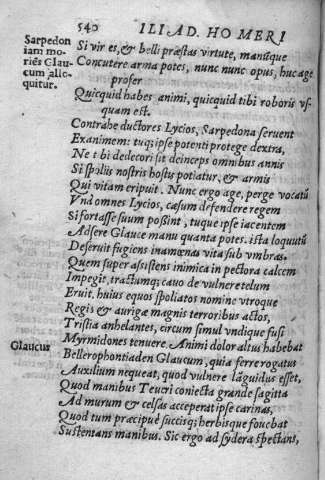 540 ILIAD. HOMERI
Sarpedon
iam mo-
riẽs Glau-
cum alio-
quitur.
Si vir es, & belli præstas virtute, manúque
Concutere arma potes, nunc nunc opus, huc age
profer
Quicquid habes animi, quicquid tibi roboris vs-
quam est.
Contrahe ductores Lycios, Sarpedona seruent
Exanimem: tuq; ipse potenti protege dextra,
Ne tibi dedecori sit deinceps omnibus annis
Si spoliis nostris hostis potiatur, & armis
Qui vitam eripuit. Nunc ergo age, perge vocatũ
Vnd omnes Lycios, cæsum defendere regem
Si fortasse suum possint, tuque ipse iacentem
Adsere Glauce manu quanta potes. ista loquutũ
Deseruit fugiens inamœnas vita sub vmbras.
Quem super assistens inimica in pectora calcem
Impegit, tractumq; cauo de vulnere telum
Eruit. huius equos spoliatos nomine vtroque
Regis & aurigæ magnis terroribus actos,
Tristia anhelantes, circum simul vndique fusi
Myrmidones tenuere. Animi dolor altus habebat
Glaucus
Bellerophontiaden Glaucum, quia ferre rogatus
Auxilium nequeat, quod vulnere lãguidus esset,
Quod manibus Teucri coniecta grande sagitta
Ad murum & celsas acceperat ipse carinas,
Quod tum præcipuè succis; herbisque fouebat
Sustentans manibus. Sic ergo ad sydera spectans,